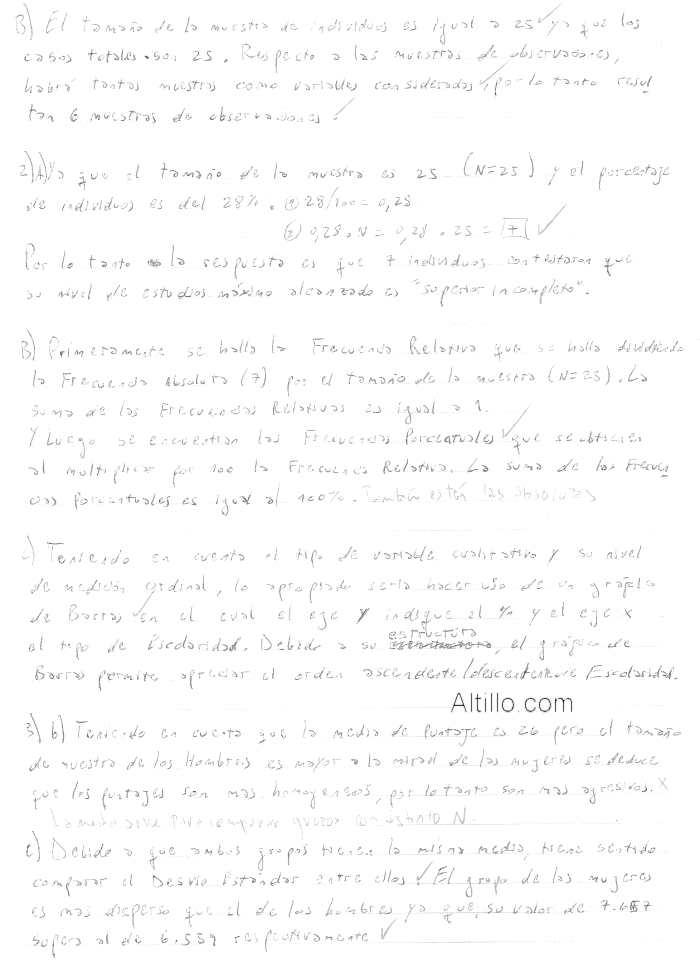 B) El tamaño de la muestra de individuos es igual a 25 ✓ ya que los
casos totales son 25. Respecto a las muestras de observaciones,
habrá tantas muestras como variables consideradas ✓, por lo tanto resul
tan 6 muestras de observaciones. ✓
2) A) Ya que el tamaño de la muestra es 25 (N=25) y el porcentaje
de individuos es del 28%. ① 28/100 = 0,28
② 0,28 . N = 0,28 . 25 = 7 ✓
Por lo tanto la respuesta es que 7 individuos contestaron que
su nivel de estudios máximo alcanzado es "superior incompleto".
B) Primeramente se halla la Frecuencia Relativa que se halla dividiendo
la Frecuencia Absoluta (7) por el tamaño de la muestra (N=25). La
suma de las Frecuencias Relativas es igual a 1.
Y Luego se encuentran las Frecuencias Porcentuales ✓ que se obtienen
al multiplicar por 100 la Frecuencia Relativa. La suma de las Frecuen
cias Porcentuales es igual al 100%. También están las absolutas
C) Teniendo en cuenta el tipo de variable cualitativa y su nivel
de medición ordinal, lo apropiado sería hacer uso de un gráfico
de Barras ✓ en el cual el eje Y indique el % y el eje x
el tipo de Escolaridad. Debido a su estructura, el gráfico de
Barras permite apreciar el orden ascendente/descendente Escolaridad.
Altillo.com
3) b) Teniendo en cuenta que la media de Puntaje es 26 pero el tamaño
de muestra de los Hombres es mayor a la mitad de las mujeres se deduce
que los puntajes son mas homogeneos, por lo tanto son mas agresivos. X
La media sirve para comparar grupos con distinto N.
C) Debido a que ambos grupos tienen la misma media, tiene sentido
comparar el Desvío Estándar entre ellos ✓ El grupo de las mujeres
es mas disperso que el de los hombres ya que, su valor de 7.657
supera al de 6.559 respectivamente ✓